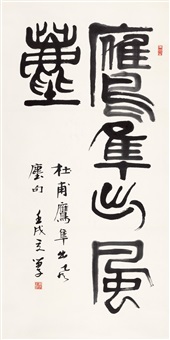 鷹隼出風
塵
杜甫鷹隼出風
塵句 壬戌